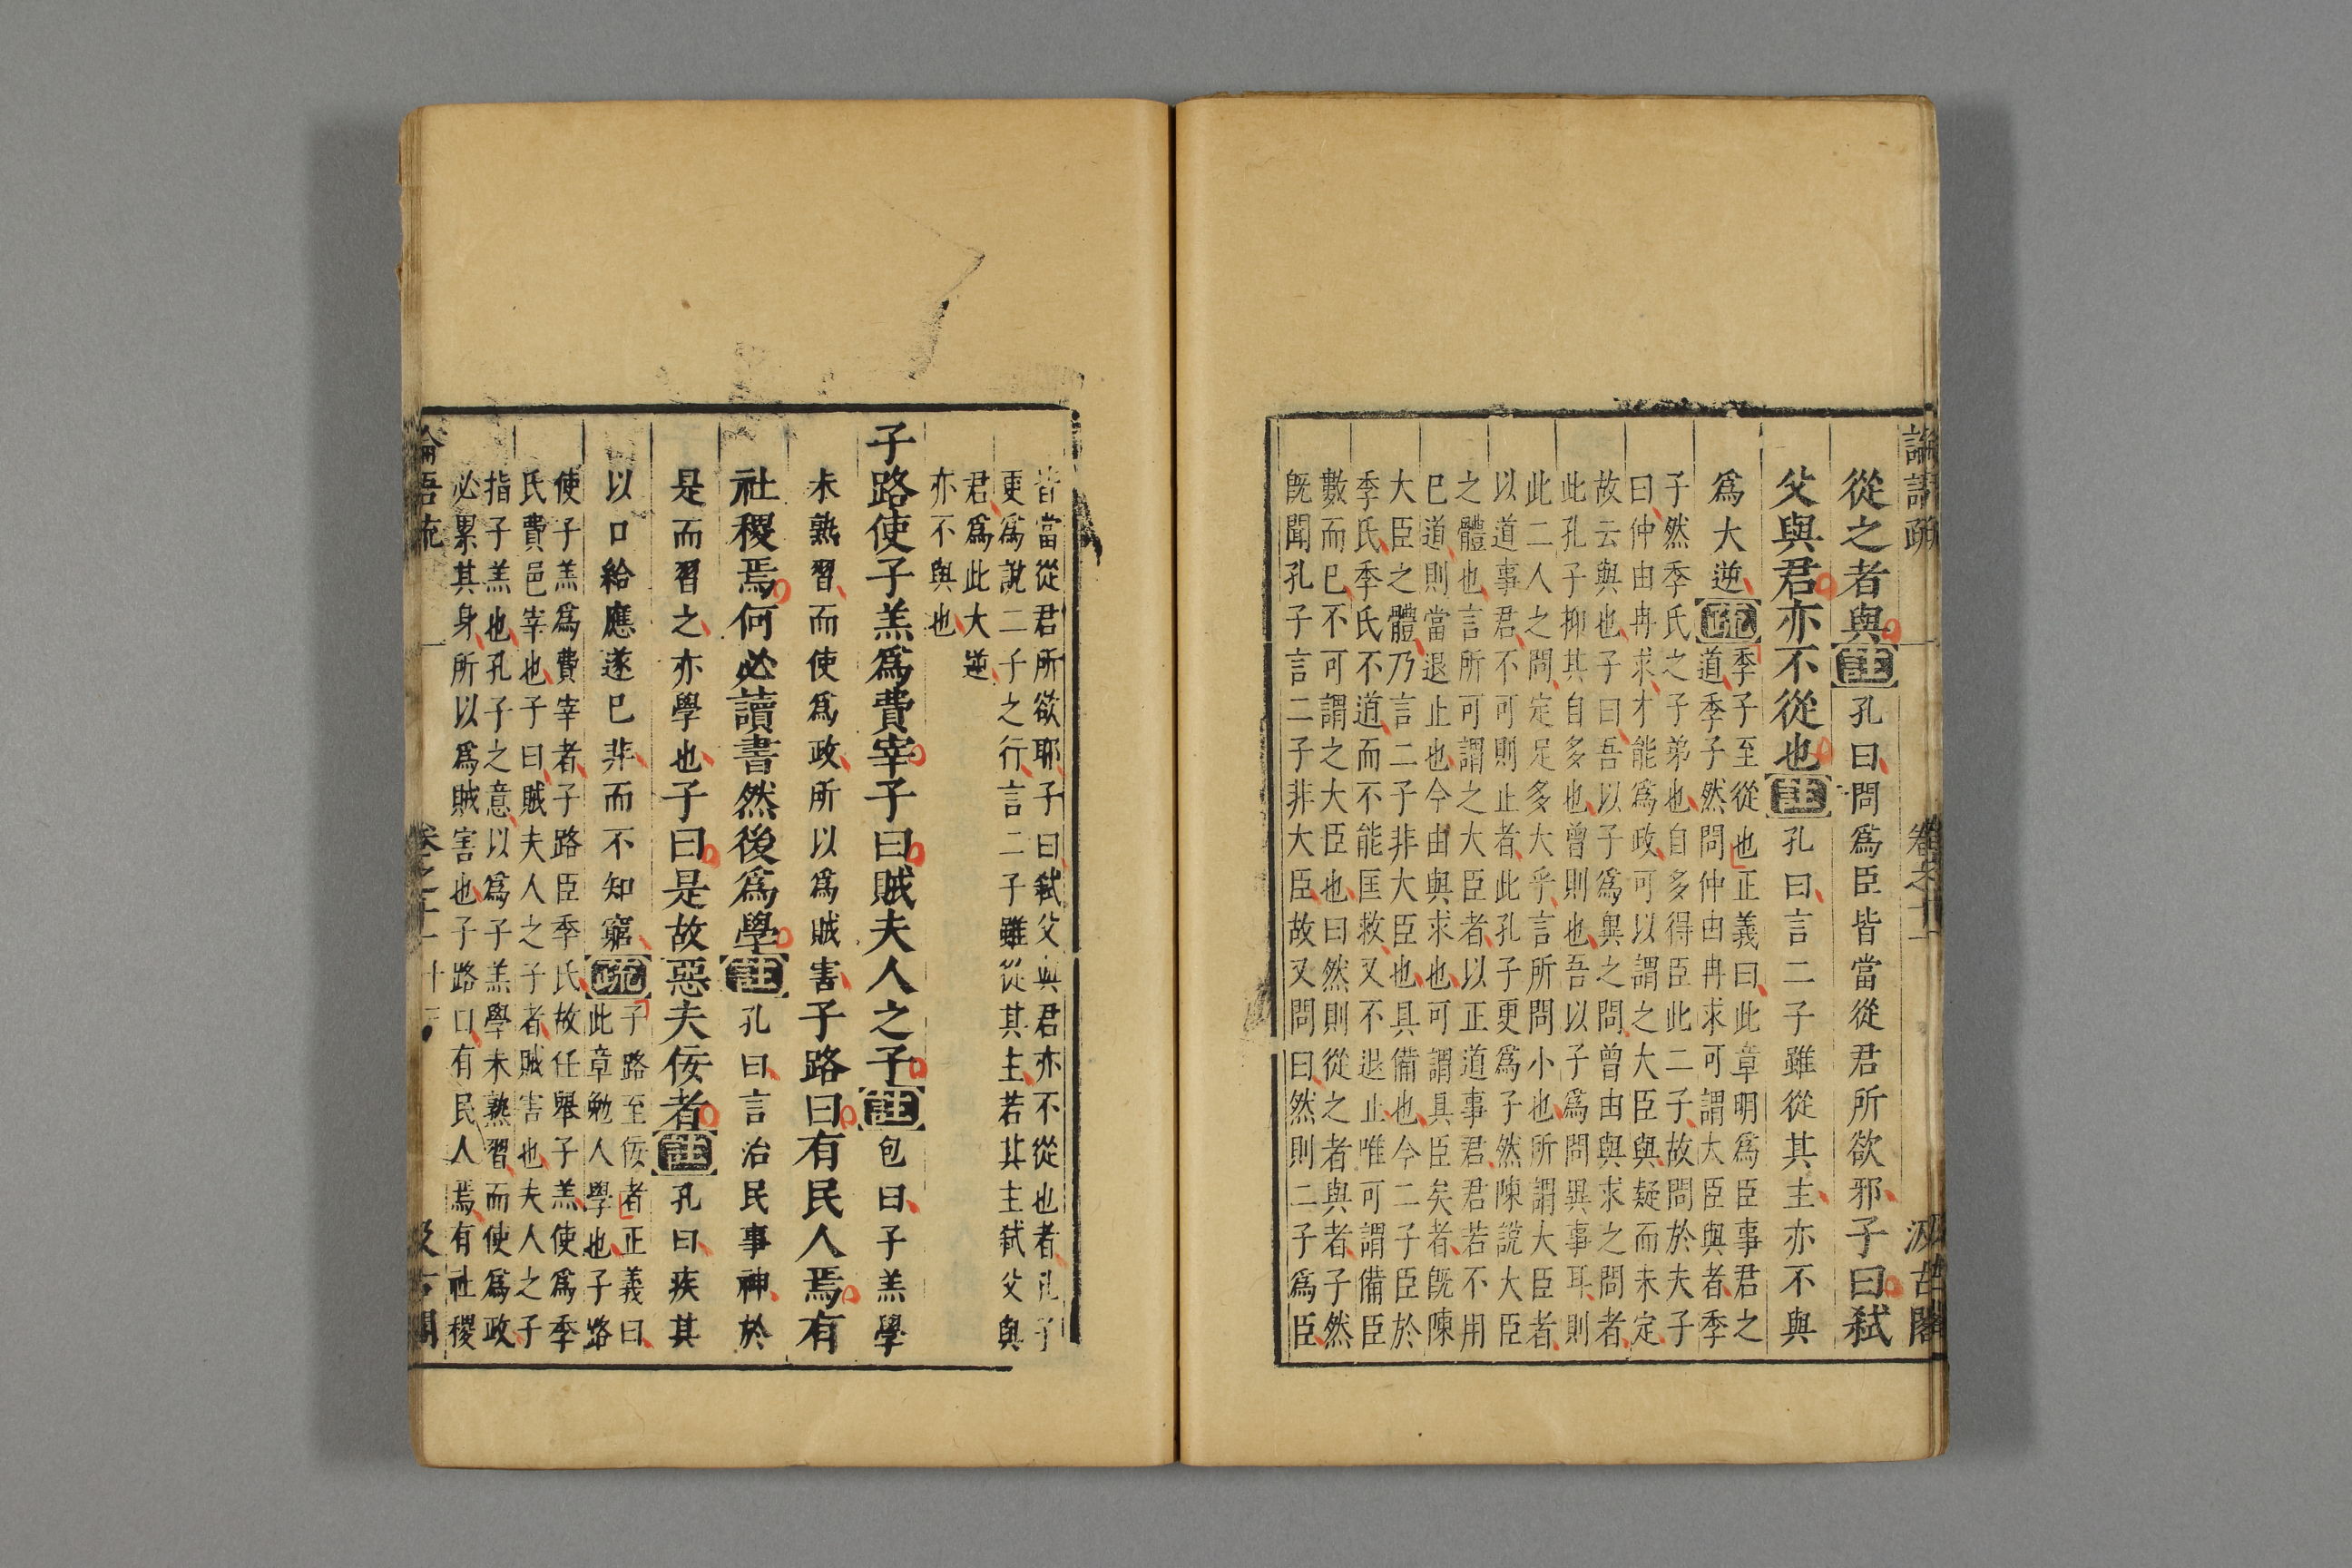 論語疏 卷之十一 汲古閣
從之者與註孔曰問爲臣皆當從君所欲邪子曰弑
父與君亦不從也註孔曰言二子雖從其主亦不與
爲大逆疏季子至從也正義曰此章明爲臣事君之
道季子然問仲由冉求可謂大臣與者季
子然季氏之子弟也自多得臣此二子故問於夫子
曰仲由冉求才能爲政可以謂之大臣與疑而未定
故云與也子曰吾以子爲異之問曾由與求之問者
此孔子抑其自多也曾則也吾以子爲問異事耳則
此二人之問定足多大乎言所問小也所謂大臣者
以道事君不可則止者此孔子更爲子然陳說大臣
之體也言所可謂之大臣者以正道事君君若不用
已道則當退止也今由與求也可謂具臣矣者既陳
大臣之體乃言二子非大臣也具備也今二子臣於
季氏季氏不道而不能匡救又不退止唯可謂備臣
數而已不可謂之大臣也曰然則從之者與者子然
既聞孔子言二子非大臣故又問曰然則二子爲臣
皆當從君所欲耶子曰弑父與君亦不從也者孔子
更爲說二子之行言二子雖從其主若其主弑父與
君爲此大逆
亦不與也
子路使子羔爲費宰子曰賊夫人之子註包曰子羔學
未熟習而使爲政所以爲賊害子路曰有民人焉有
社稷焉何必讀書然後爲學註孔曰言治民事神於
是而習之亦學也子曰是故惡夫佞者註孔曰疾其
以口給應遂已非而不知窮疏子路至佞者正義曰
此章勉人學也子路
使子羔爲費宰者子路臣季氏故任舉子羔使爲季
氏費邑宰也子曰賊夫人之子者賊害也夫人之子
指子羔也孔子之意以爲子羔學未熟習而使爲政
必累其身所以爲賊害也子路曰有民人焉有社稷
論語疏 卷之十一 十三 汲古閣